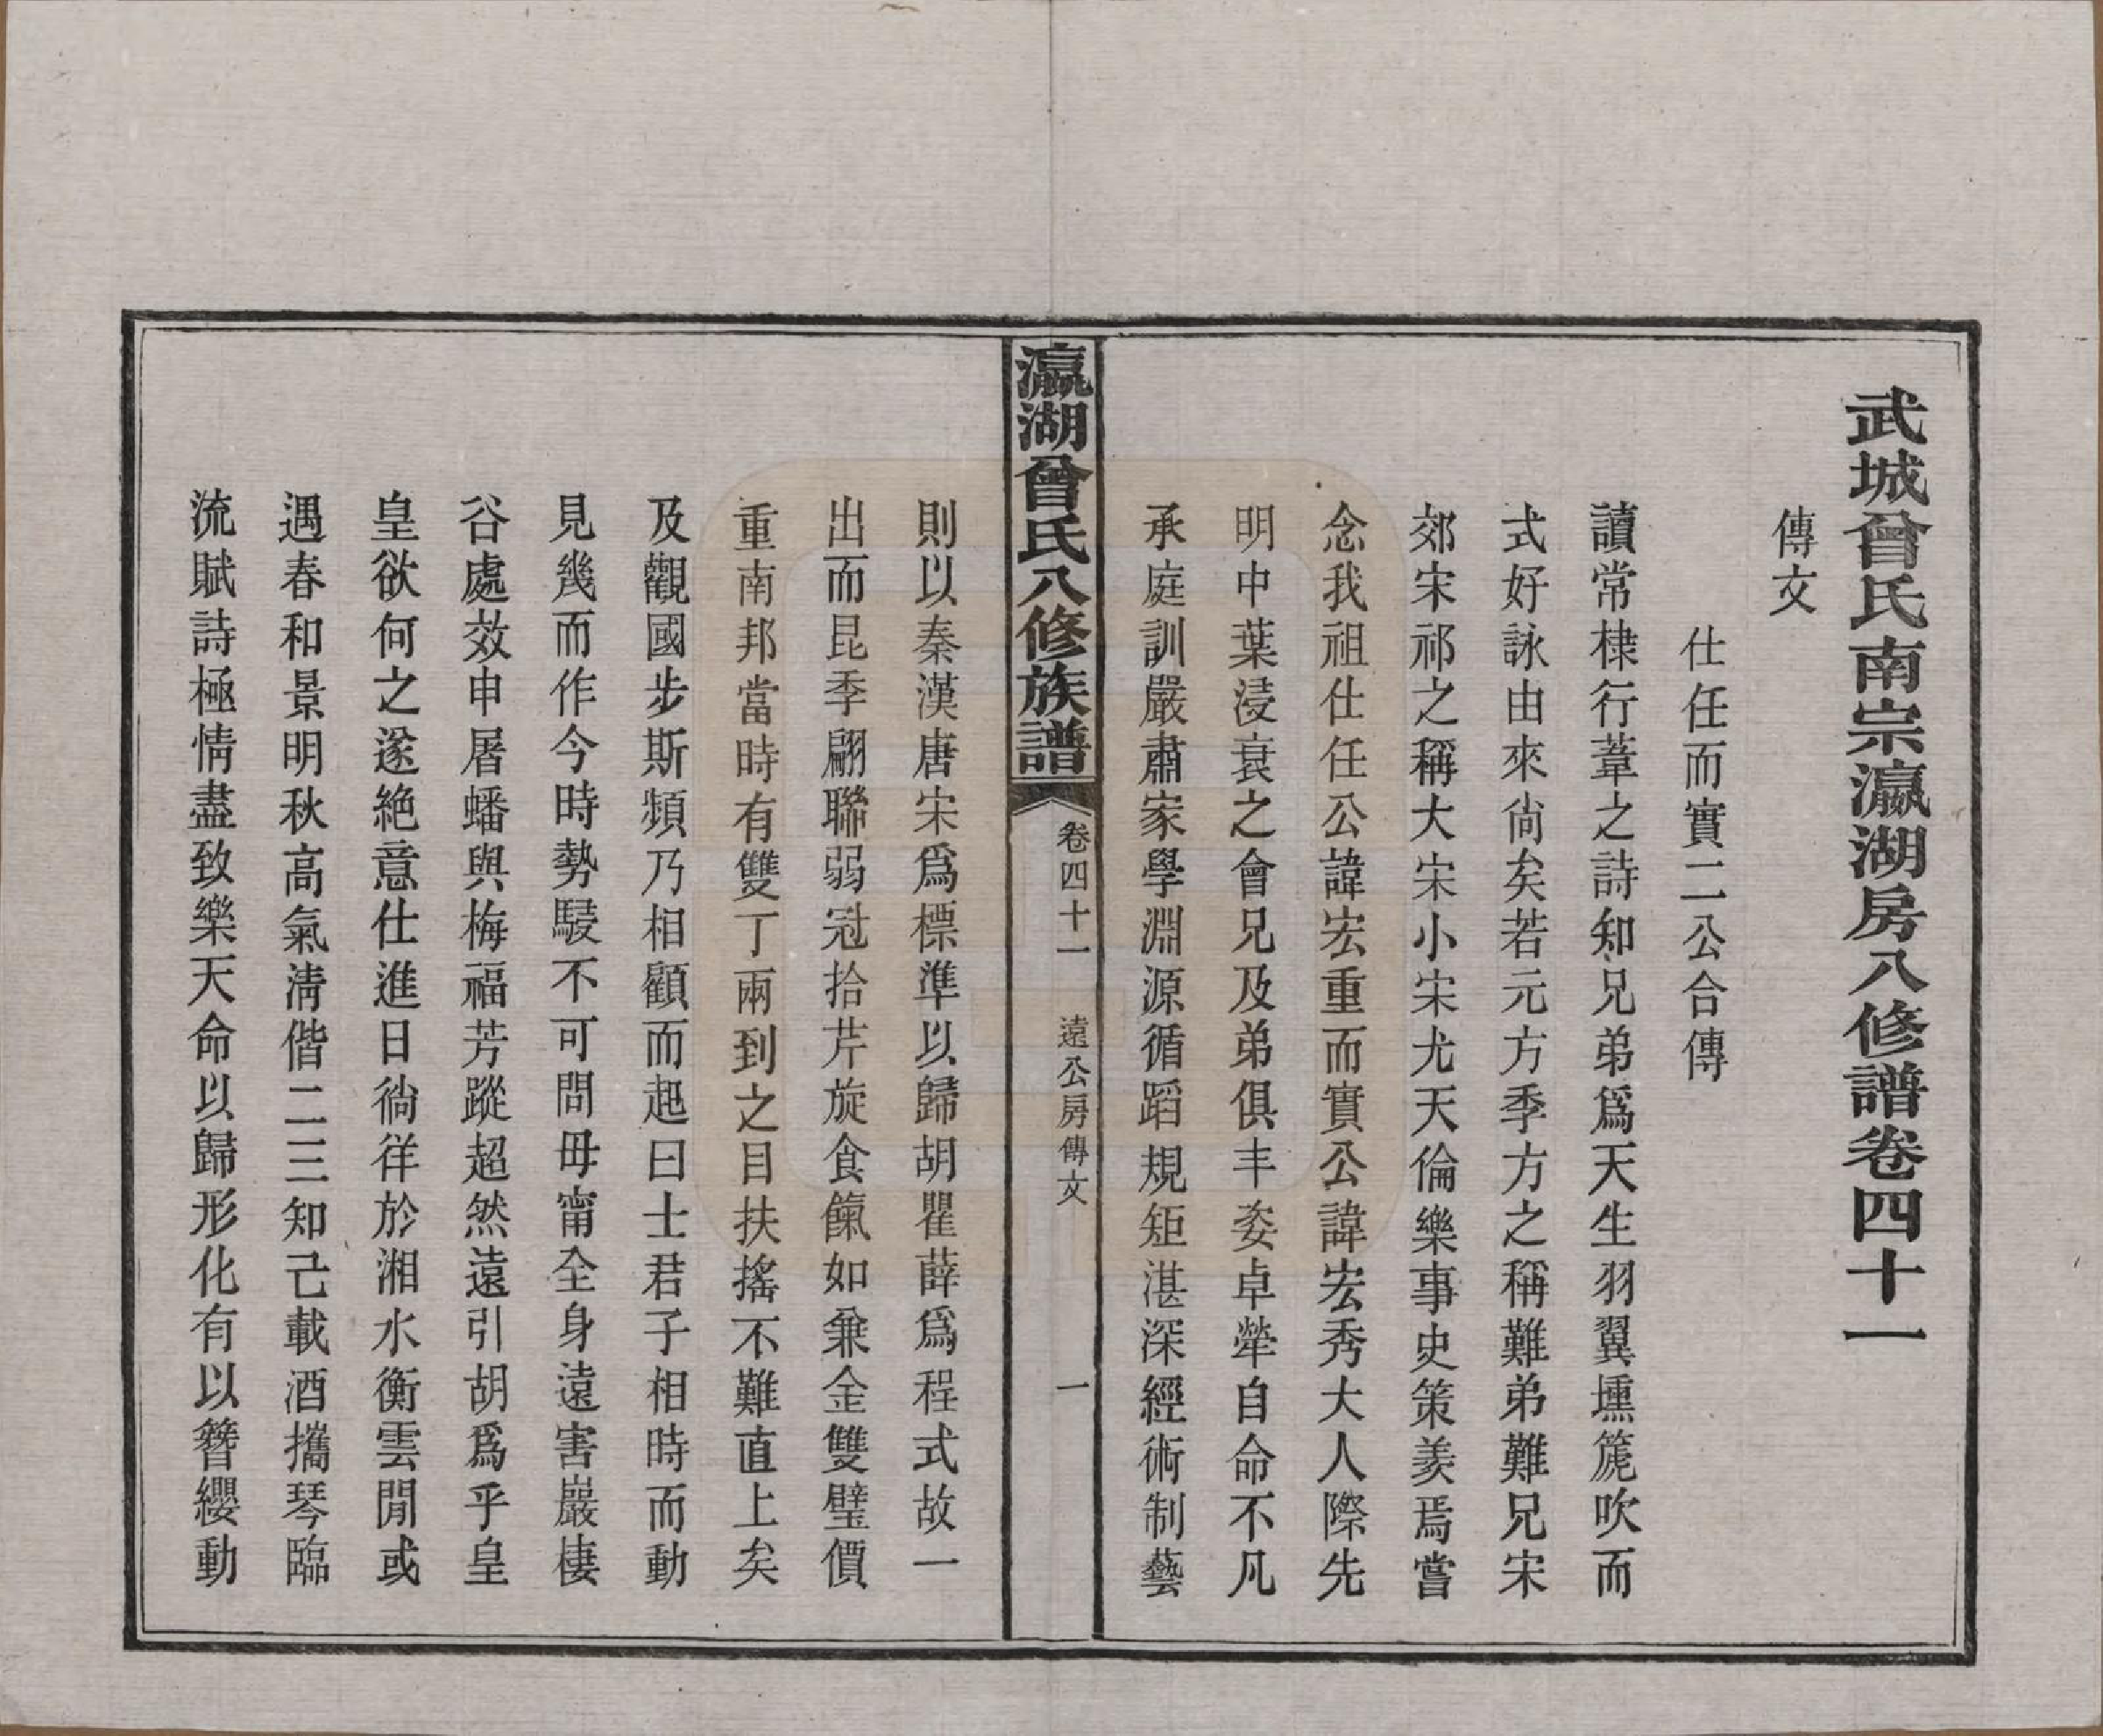 武城曾氏南宗瀛湖房八修譜卷四十一
傳文
仕任而實二公合傳
讀常棣行葦之詩知兄弟爲天生羽翼壎篪吹而
式好詠由來尙矣若元方季方之稱難弟難兄宋
郊宋祁之稱大宋小宋尤天倫樂事史策羨焉嘗
念我祖仕任公諱宏重而實公諱宏秀大人際先
明中葉浸衰之會兄及弟俱丰姿卓犖自命不凡
承庭訓嚴肅家學淵源循蹈規矩湛深經術制藝
瀛湖曾氏八修族譜
卷四十一
遠公房傳文
一
則以秦漢唐宋爲標準以歸胡瞿薛爲程式故一
出而昆季翩聯弱冠拾芹旋食餼如兼金雙璧價
重南邦當時有雙丁兩到之目扶搖不難直上矣
及觀國步斯頻乃相顧而起曰士君子相時而動
見幾而作今時勢駸不可問毋甯全身遠害巖棲
谷處效申屠蟠與梅福芳蹤超然遠引胡爲乎皇
皇欲何之遂絶意仕進日徜徉於湘水衡雲閒或
遇春和景明秋高氣淸偕二三知己載酒攜琴臨
流賦詩極情盡致樂天命以歸形化有以簪纓動